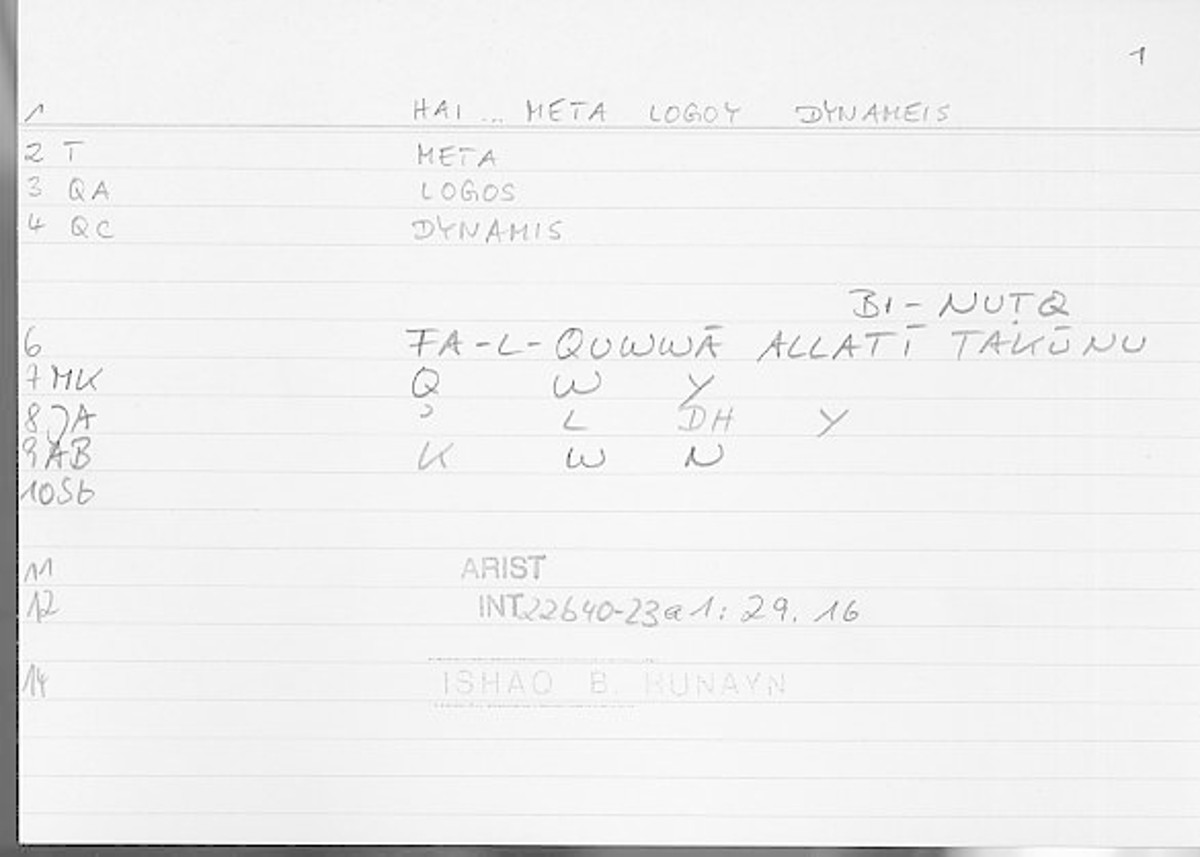 1
1 HAI ... META LOGOY DYNAMEIS
2 T META
3 QA LOGOS
4 QC DYNAMIS
BI-NUṬQ
6 FA-L-QUWWĀ ALLATĪ TAKŪNU
7 MK Q W Y
8 JA ʾ L DH Y
9 AB K W N
10 Sb
11 ARIST
12 INT 22b40-23a1: 29.16
14 ISHAQ B. HUNAYN